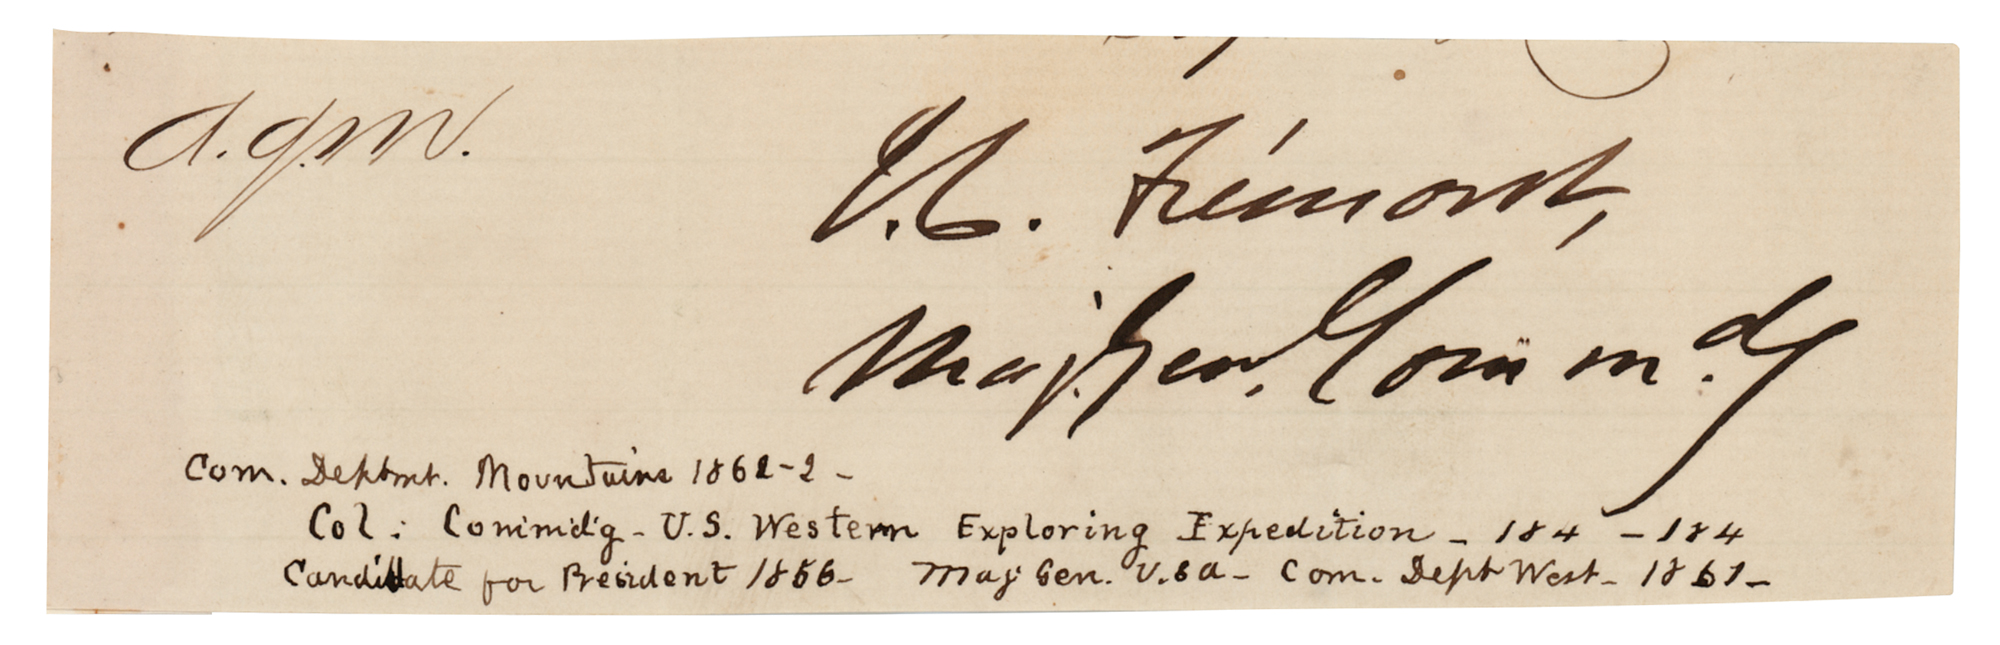 A.G.M.
J.C. Frémont,
Maj. Gen. Comm.dg
Com. Deptmt. Mountains 1862-2 -
Col: Commd'g - U.S. Western Exploring Expedition - 184 - 184
Candidate for President 1856 - Maj Gen. U.S.A - Com. Dept West - 1861 -